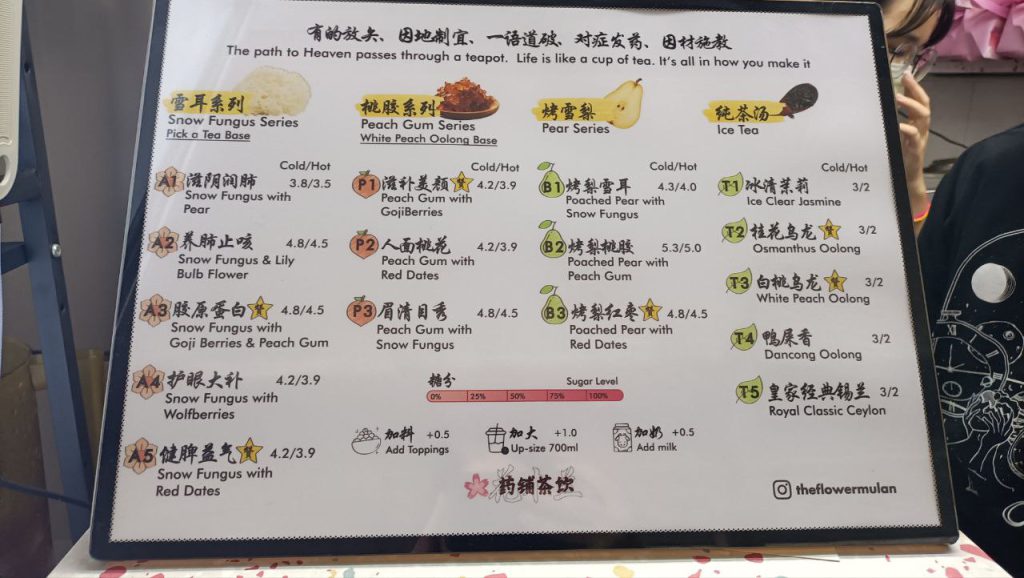 有的放矢、因地制宜、一语道破、对症发药、因材施教
The path to Heaven passes through a teapot. Life is like a cup of tea. It's all in how you make it
雪耳系列
Snow Fungus Series
Pick a Tea Base
Cold/Hot
A1 滋阴润肺 3.8/3.5
Snow Fungus with
Pear
A2 养肺止咳 4.8/4.5
Snow Fungus & Lily
Bulb Flower
A3 胶原蛋白 赞 4.8/4.5
Snow Fungus with
Goji Berries & Peach Gum
A4 护眼大补 4.2/3.9
Snow Fungus with
Wolfberries
A5 健脾益气 赞 4.2/3.9
Snow Fungus with
Red Dates
桃胶系列
Peach Gum Series
White Peach Oolong Base
Cold/Hot
P1 滋补美颜 赞 4.2/3.9
Peach Gum with
GojiBerries
P2 人面桃花 4.2/3.9
Peach Gum with
Red Dates
P3 眉清目秀 4.8/4.5
Peach Gum with
Snow Fungus
烤雪梨
Pear Series
Cold/Hot
B1 烤梨雪耳 4.3/4.0
Poached Pear with
Snow Fungus
B2 烤梨桃胶 5.3/5.0
Poached Pear with
Peach Gum
B3 烤梨红枣 赞 4.8/4.5
Poached Pear with
Red Dates
纯茶汤
Ice Tea
Cold/Hot
T1 冰清茉莉 3/2
Ice Clear Jasmine
T2 桂花乌龙 赞 3/2
Osmanthus Oolong
T3 白桃乌龙 赞 3/2
White Peach Oolong
T4 鸭屎香 3/2
Dancong Oolong
T5 皇家经典锡兰 3/2
Royal Classic Ceylon
糖分 Sugar Level
0% 25% 50% 75% 100%
加料 +0.5
Add Toppings
加大 +1.0
Up-size 700ml
加奶 +0.5
Add milk
药铺茶饮
theflowermulan